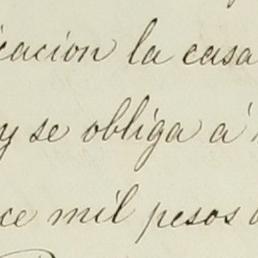 icacion la casa
y se obliga á
ce mil pesos